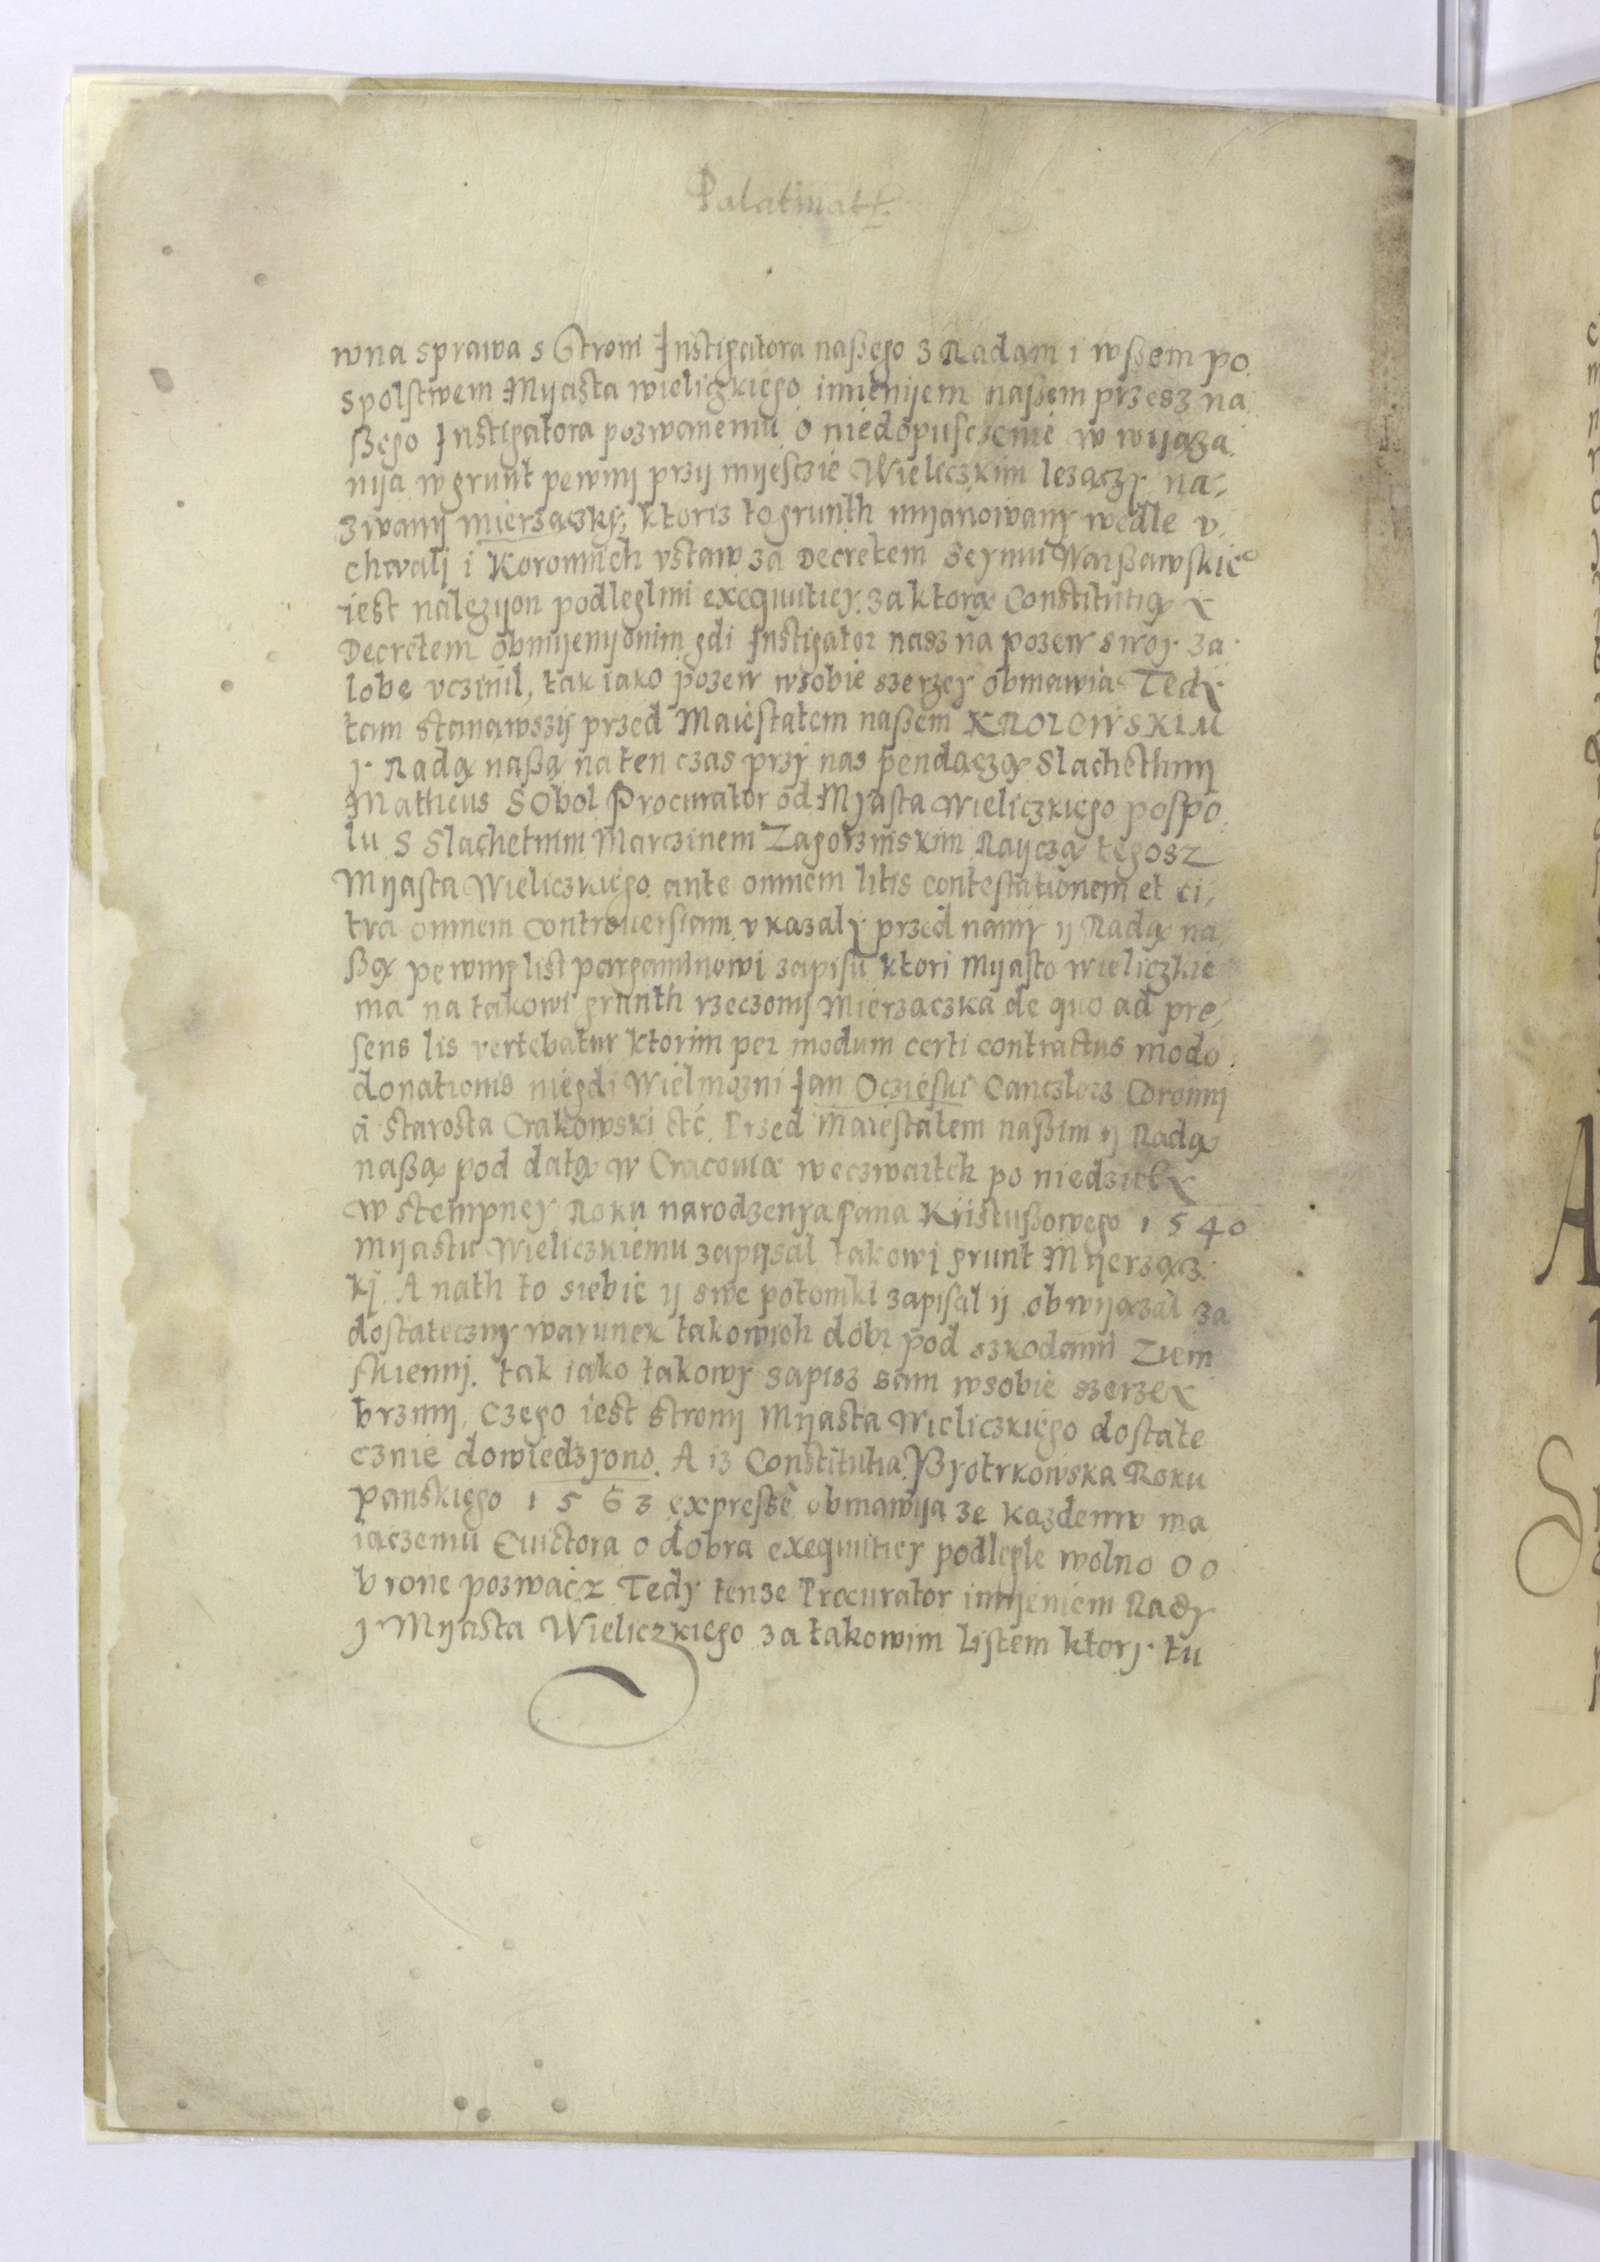 Palatinatt.
wna sprawa s Stroni Instigatora naßego z Radam i wßem po
spolstwem Myasta wieliczkiego imienijem naßem przesz na
ßego Instigatora pozwanemu o niedopusczenie w wijąza
nija w grunt pewny przy mijesczie Wieliczkim lezączy na
zwany mierzączky, ktoris to grunth mijanowany wedle v
chwalj i Koronnich vstaw za Decretem Seymu Warßawskie
iest nalezijon podleglmi exequutiey. za ktorą Constitutią y
Decretem obmijenijonim gdi Instigator nasz na pozew swoy za
lobe vczinil, tak iako pozew wsobie szerzey obmawia Tedy
tam stanawszy przed Maiestatem naßem KROLOWSKIM
y Radą naßą na ten czas przy nas bendączą Slachethny
Matheus SObol Procurator od Myasta Wieliczkiego pospo
lu S Slachetnim Marczinem Zagorzinskim Rayczą tegosz
Myasta Wieliczkiego ante omnem litis contestationem et ci,
tra omnem controuersiam vkazaly przed namy y Radą na
ßą pewny list pargaminowi zapisu ktori Myasto wieliczkie
ma na takowi grunth rzeczony Mierzaczka de quo ad pre,
sens lis vertebatur ktorim per modum certi contractus modo
donationis niegdi Wielmozni Jan Oczieski Canczlerz Coronny
a Starosta Crakowski etc. Przed Maiestatem naßim y Radą
naßą pod datą w Cracovia weczwartek po niedzieli
w stempney Roku narodzenya Pana Kristußowego 1540
Myastu Wieliczkiemu zapysal takowy grunt Myerzącz
ky. A nath to siebie y swe potomki zapisal y obwijązal za
dostateczny warunek takowich dobr pod szkodami Ziem
skiemy. tak iako takowy sapisz sam wsobie szerzey
brzmy, czego iest strony Myasta Wieliczkiego dostate
cznie dowiedzyono. A iz Constitutia Pyotrkowska Roku
panskiego 1563 expresse obmawija ze kazdemu ma
iaczemu Euictora o dobra exequutiey podlegle wolno Oo
brone pozwacz Tedy tenze Procurator imijeniem Rady
y Myasta Wieliczkiego za takowim Listem ktory tu